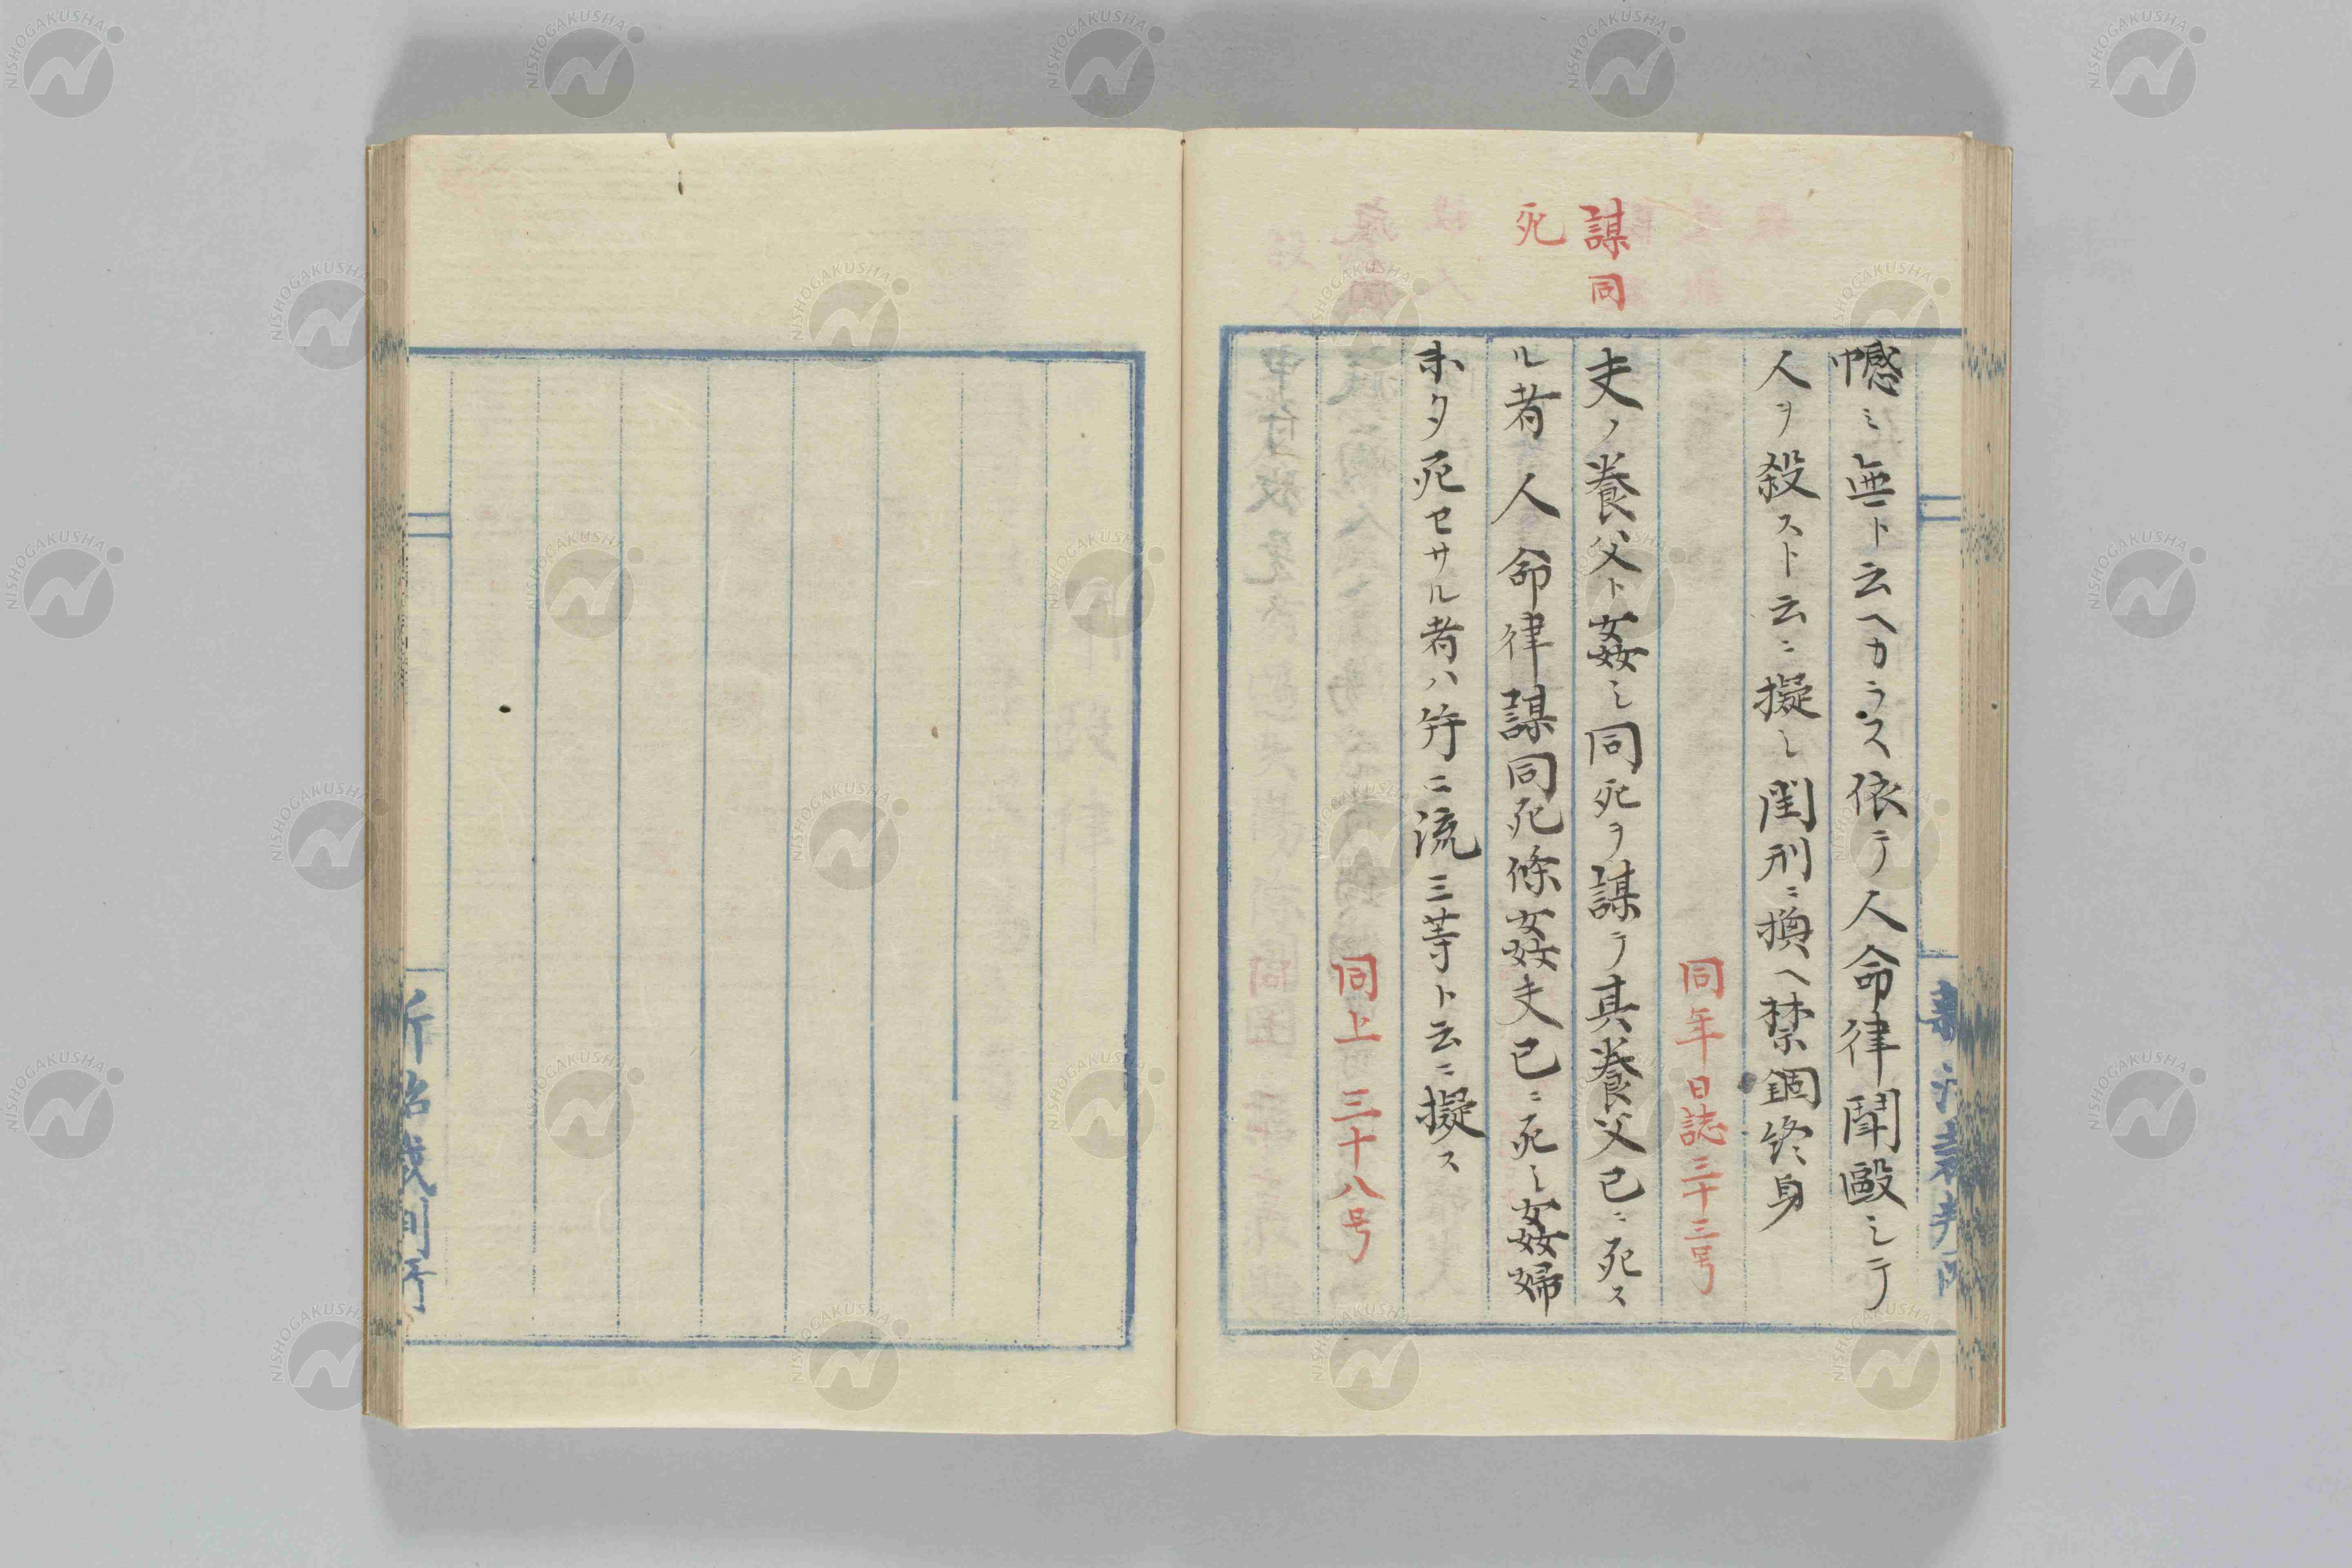 憾ミ無ト云ヘカラス依テ人命律鬪毆シテ
人ヲ殺スト云ニ擬シ閏刑ニ換ヘ禁錮終身
同年日誌三十三号
謀同
死
夫ノ養父ト姦シ同死ヲ謀テ其養父已ニ死ス
ル者人命律謀同死條姦夫已ニ死シ姦婦
未タ死セサル者ハ竝ニ流三等ト云ニ擬ス
同上三十八号
NISHOGAKUSHA